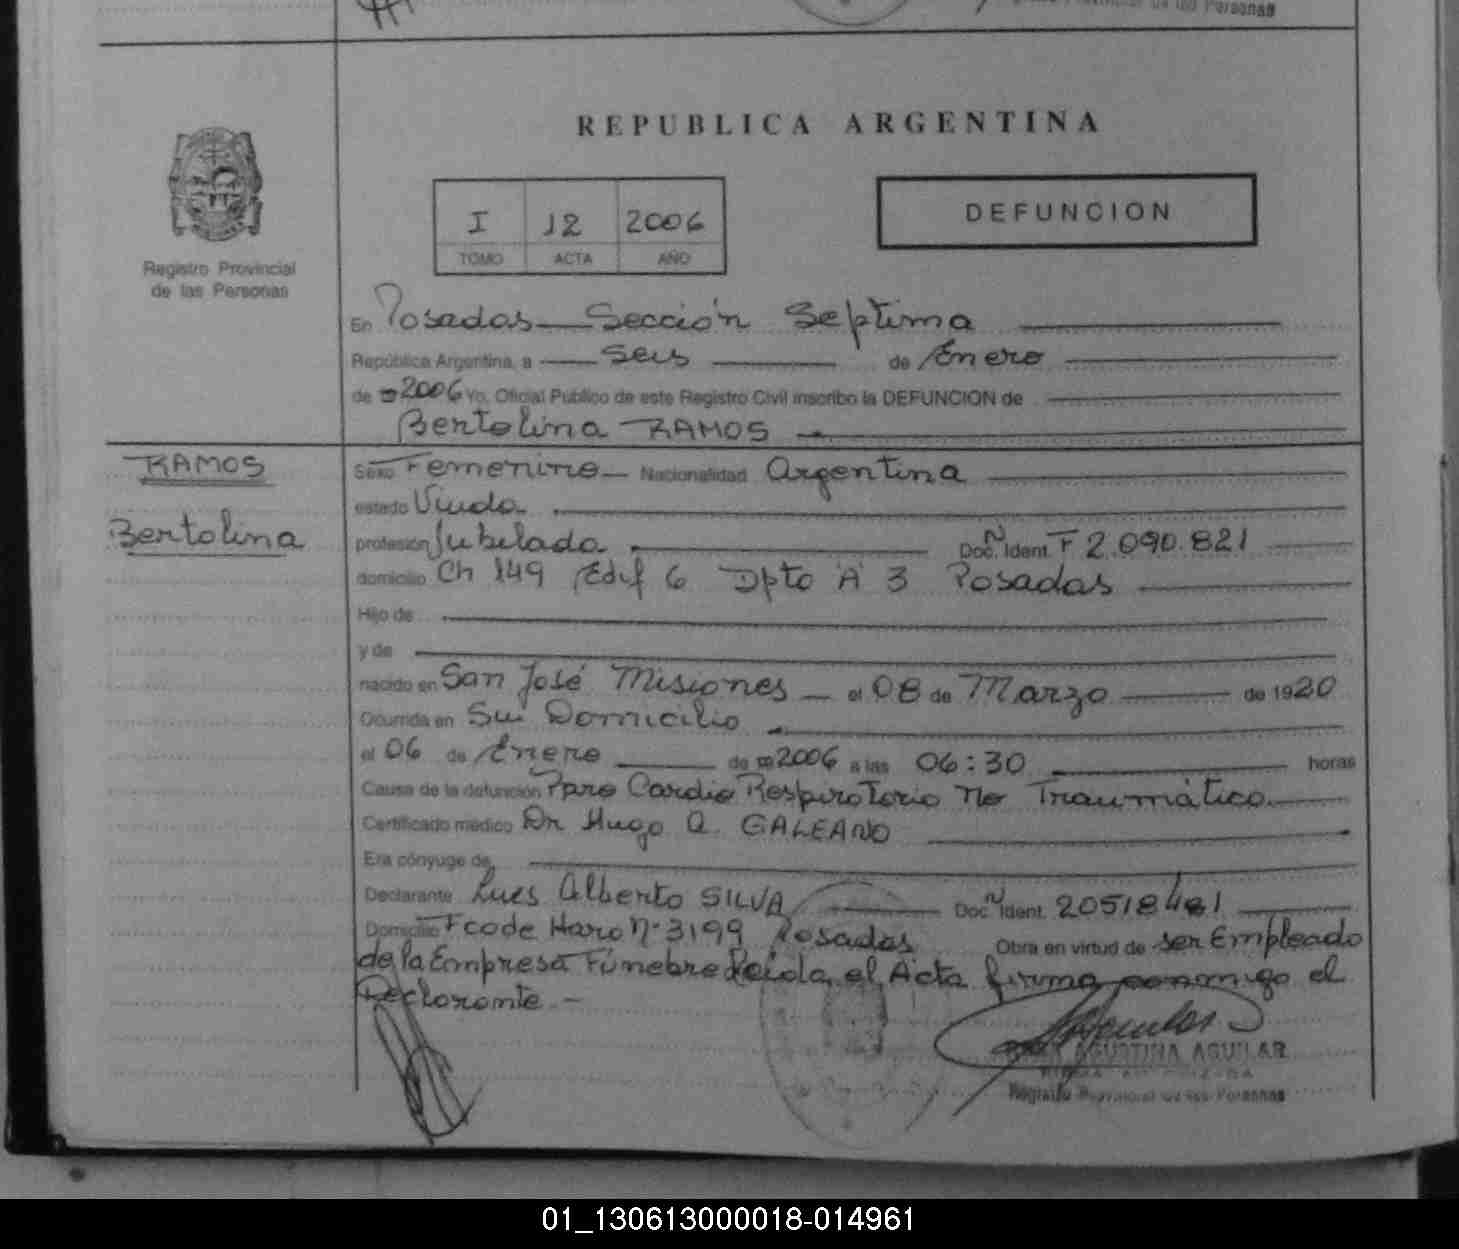 de las Personas
REPUBLICA ARGENTINA
I 12 2006
TOMO ACTA AÑO
DEFUNCION
Registro Provincial
de las Personas
En Posadas Sección Septima
República Argentina, a Seis de Enero
de 2006 Yo, Oficial Público de este Registro Civil inscribo la DEFUNCION de
Bertolina RAMOS
RAMOS
Bertolina
Sexo Femenino Nacionalidad Argentina
estado Viuda
profesión Jubilada Doc. Ident. F 2.090.821
domicilio Ch 149 Edif 6 Dpto A 3 Posadas
Hijo de
y de
nacido en San José Misiones el 08 de Marzo de 1920
Ocurrida en Su Domicilio
el 06 de Enero de 2006 a las 06:30 horas
Causa de la defunción Paro Cardio Respiratorio No Traumático
Certificado médico Dr Hugo A. GALEANO
Era cónyuge de
Declarante Luis Alberto SILVA Doc. Ident. 20518481
Domicilio Fco de Haro Nº 3199 Posadas Obra en virtud de ser Empleado
de la Empresa Fúnebre Leída el Acta firma conmigo el
Declarante -
AGUSTINA AGUILAR
Registro Provincial de las Personas
01_130613000018-014961